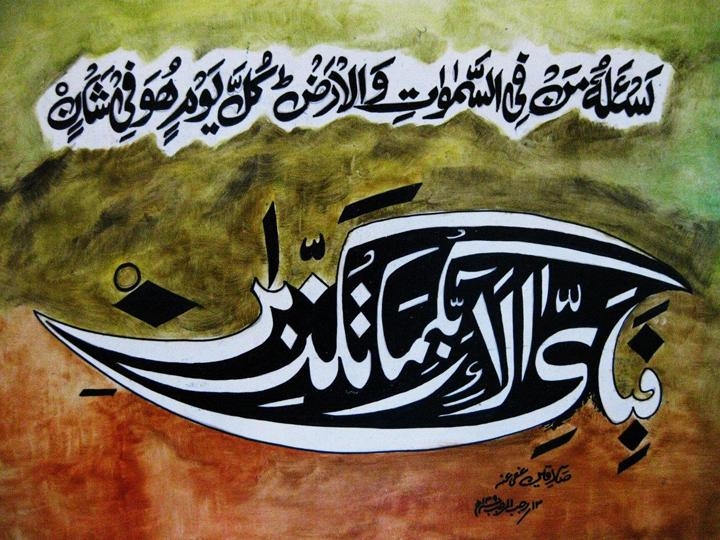 يَسْـَٔلُهُ مَنْ فِي السَّمٰوٰتِ وَالْاَرْضِ ؕ كُلَّ يَوْمٍ هُوَ فِيْ شَاْنٍ
فَبِاَيِّ اٰلَآءِ رَبِّكُمَا تُكَذِّبٰنِ
عفی عنہ